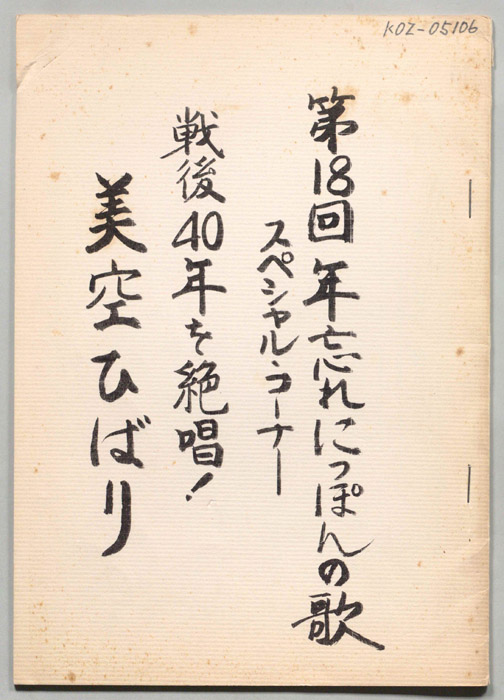 KOZ-05106
第18回 年忘れにっぽんの歌
スペシャル・コーナー
戦後40年を絶唱!
美空ひばり